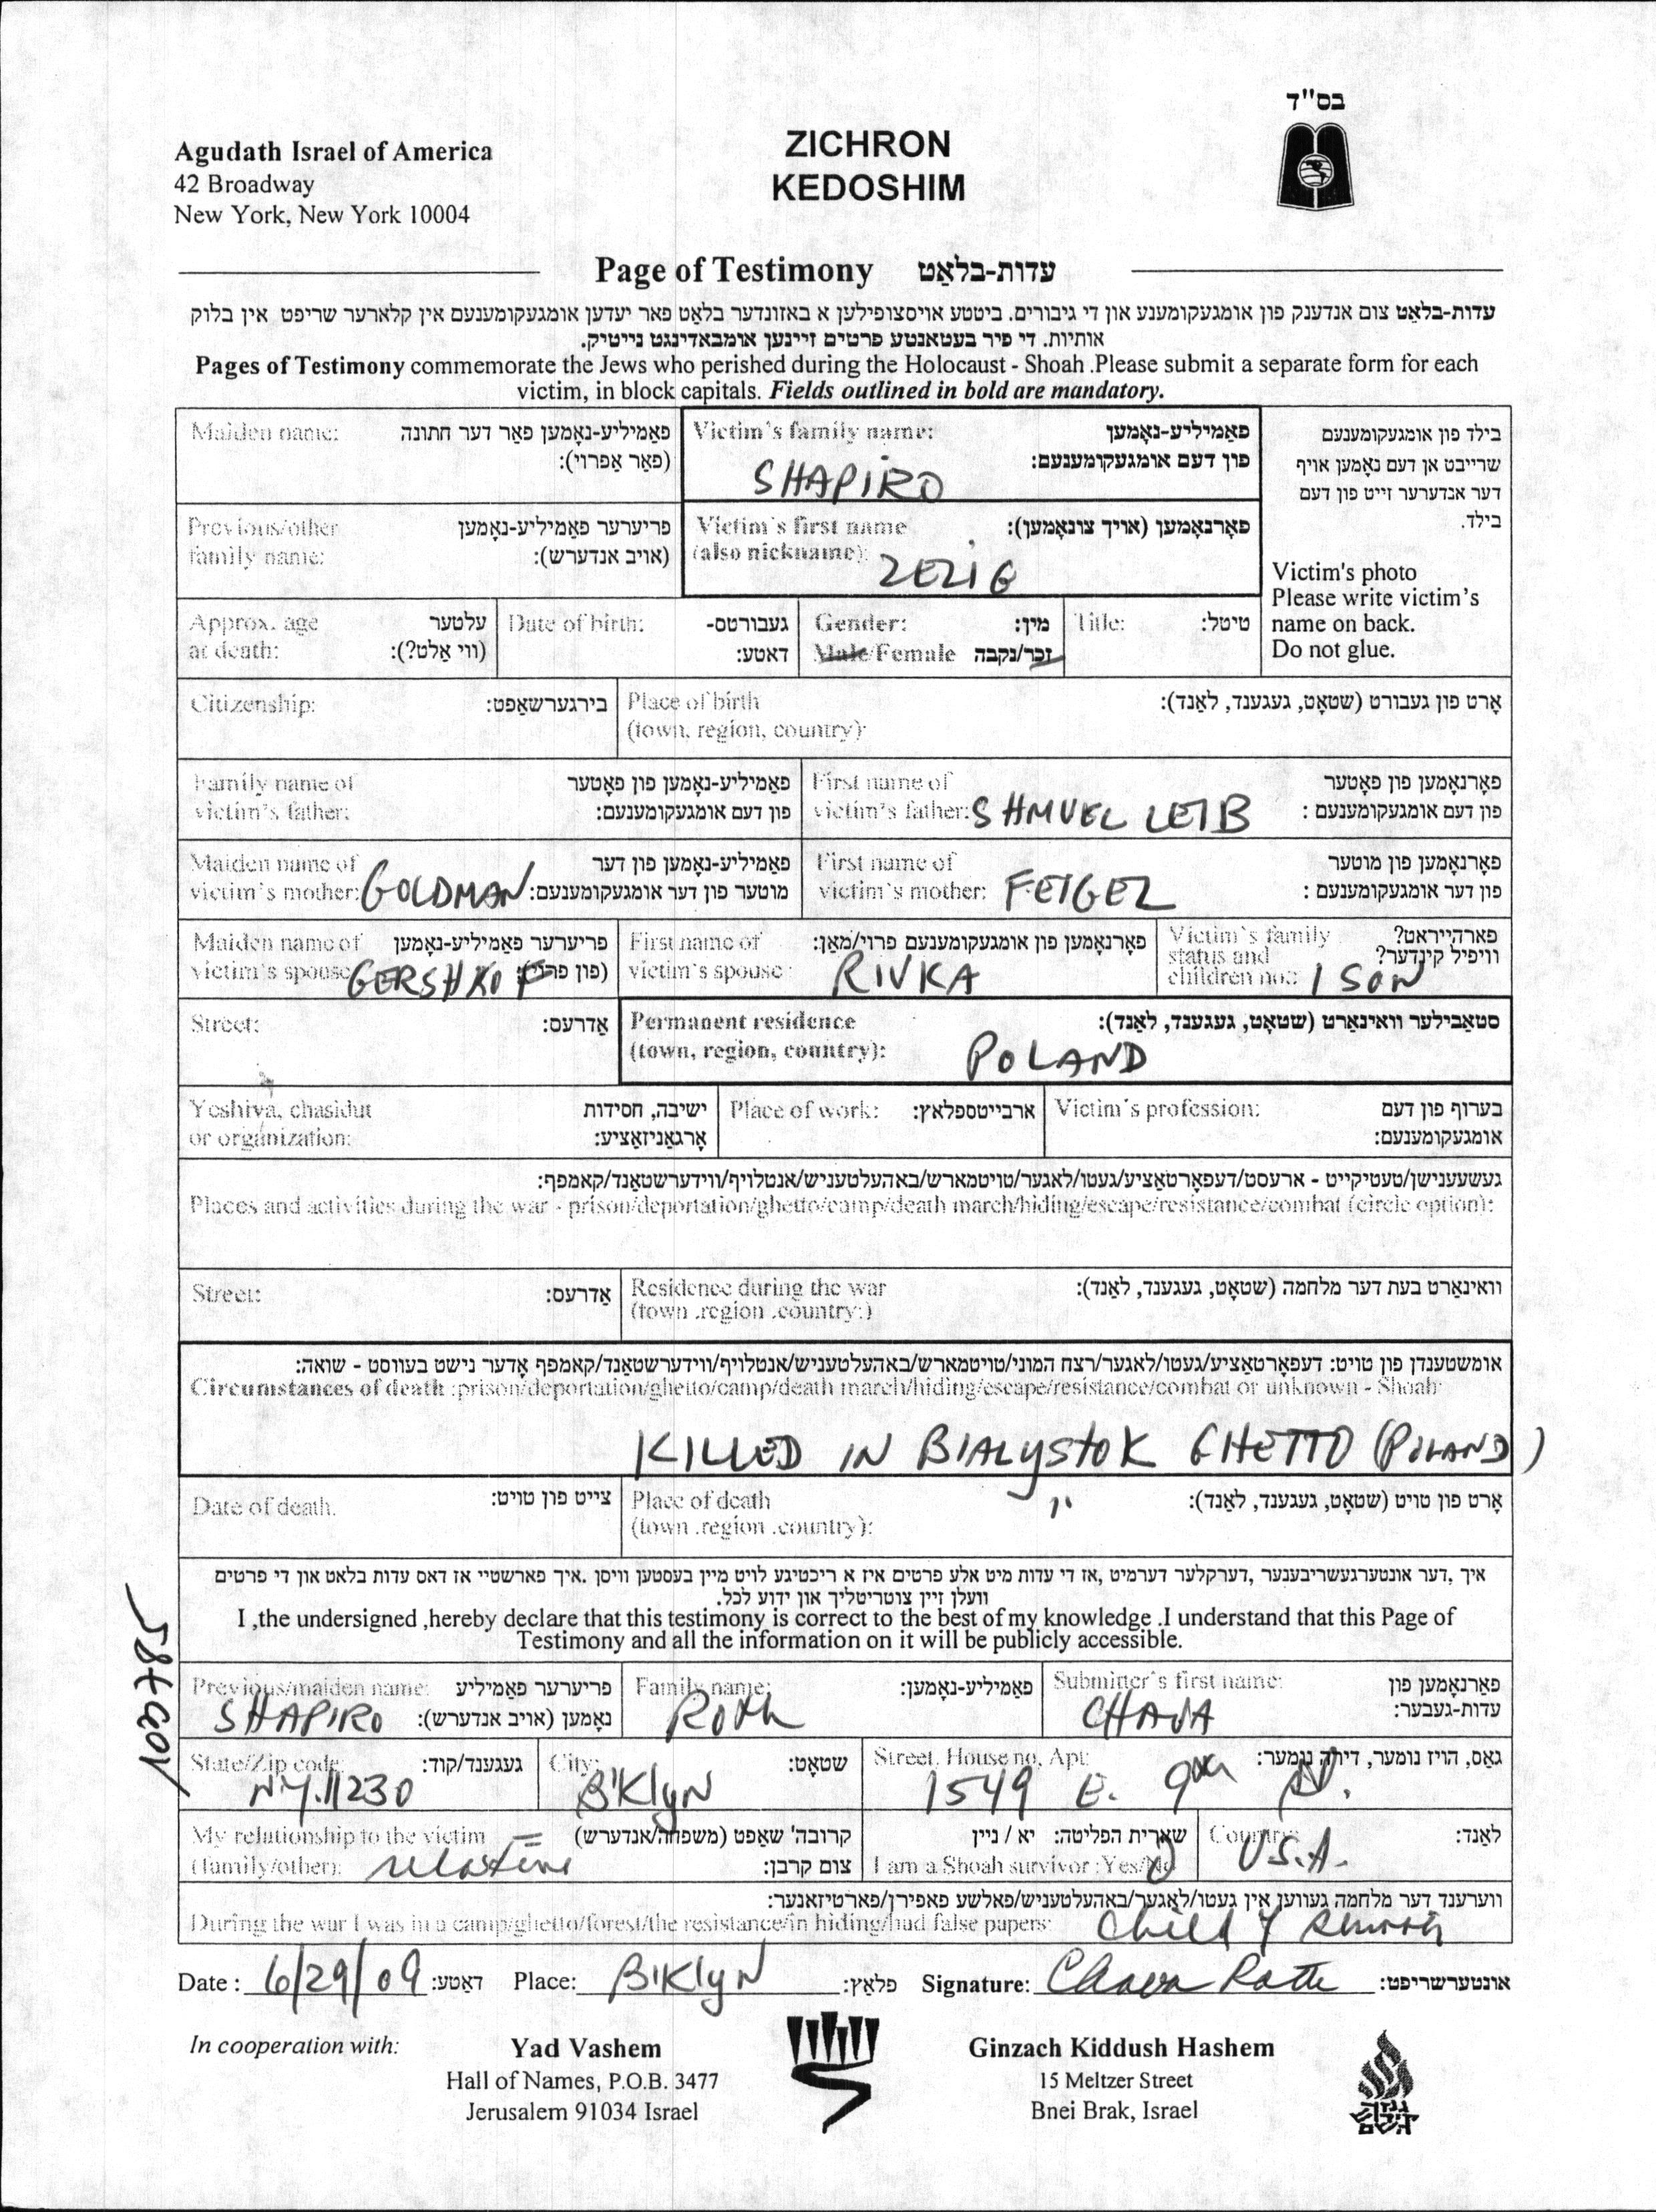 בס"ד
Agudath Israel of America
42 Broadway
New York, New York 10004
ZICHRON
KEDOSHIM
Page of Testimony עדות-בלאַט
עדות-בלאַט צום אנדענק פון אומגעקומענע און די גיבורים. ביטטע אויסצופילען א באזונדער בלאַט פאר יעדען אומגעקומענעם אין קלארער שריפט אין בלוק
אותיות. די פיר בעטאנטע פרטים זיינען אומבאדינגט נייטיק.
Pages of Testimony commemorate the Jews who perished during the Holocaust - Shoah .Please submit a separate form for each
victim, in block capitals. Fields outlined in bold are mandatory.
Maiden name: פאַמיליע-נאָמען פאַר דער חתונה
(פאַר אַפרוי):
Victim's family name: פאַמיליע-נאָמען
פון דעם אומגעקומענעם:
SHAPIRO
בילד פון אומגעקומענעם
שרייבט אן דעם נאָמען אויף
דער אנדערער זייט פון דעם
בילד.
Previous/other פריערער פאַמיליע-נאָמען
family name: (אויב אנדערש):
Victim's first name פאָרנאָמען (אויך צונאָמען):
(also nickname): ZELIG
Victim's photo
Please write victim's
name on back.
Do not glue.
Approx. age עלטער
at death: (ווי אַלט?):
Date of birth: געבורטס-
דאטע:
Gender: מין:
Male/Female זכר/נקבה
Title: טיטל:
Citizenship: בירגערשאַפט:
Place of birth אָרט פון געבורט (שטאָט, געגענד, לאַנד):
(town, region, country):
Family name of פאַמיליע-נאָמען פון פאָטער
victim's father: פון דעם אומגעקומענעם:
First name of פאָרנאָמען פון פאָטער
victim's father: SHMUEL LEIB פון דעם אומגעקומענעם :
Maiden name of פאַמיליע-נאָמען פון דער
victim's mother: GOLDMAN מוטער פון דער אומגעקומענעם:
First name of פאָרנאָמען פון מוטער
victim's mother: FEIGEL פון דער אומגעקומענעם :
Maiden name of פריערער פאַמיליע-נאָמען
victim's spouse GERSHKOF (פון פרוי):
First name of פאָרנאָמען פון אומגעקומענעם פרוי/מאַן:
victim's spouse: RIVKA
Victim's family פארהייראט?
status and וויפיל קינדער?
children no.: 1 SON
Street: אַדרעס:
Permanent residence סטאַבילער וואוינאָרט (שטאָט, געגענד, לאַנד):
(town, region, country): POLAND
Yeshiva, chasidut ישיבה, חסידות
or organization: אָרגאַניזאַציע:
Place of work: ארבייטספלאץ:
Victim's profession: בערוף פון דעם
אומגעקומענעם:
געשעענישן/טעטיקייט - ארעסט/דעפאָרטאַציע/געטו/לאגער/טויטמארש/באהעלטעניש/אנטלויף/ווידערשטאַנד/קאמפף:
Places and activities during the war - prison/deportation/ghetto/camp/death march/hiding/escape/resistance/combat (circle option):
Street: אַדרעס:
Residence during the war וואוינאָרט בעת דער מלחמה (שטאָט, געגענד, לאַנד):
(town .region .country:)
אומשטענדן פון טויט: דעפאָרטאַציע/געטו/לאגער/רצח המוני/טויטמארש/באהעלטעניש/אנטלויף/ווידערשטאַנד/קאמפף אָדער נישט בעוואוסט - שואה:
Circumstances of death :prison/deportation/ghetto/camp/death march/hiding/escape/resistance/combat or unknown - Shoah:
KILLED IN BIALYSTOK GHETTO (POLAND)
Date of death. צייט פון טויט:
Place of death אָרט פון טויט (שטאָט, געגענד, לאַנד):
(town .region .country): "
איך ,דער אונטערגעשריבענער ,דערקלער דערמיט ,אז די עדות מיט אלע פרטים איז א ריכטיגע לויט מיין בעסטען וויסן .איך פארשטיי אז דאס עדות בלאט און די פרטים
וועלן זיין צוטריטליך און ידוע לכל.
I ,the undersigned ,hereby declare that this testimony is correct to the best of my knowledge .I understand that this Page of
Testimony and all the information on it will be publicly accessible.
Previous/maiden name: פריערער פאַמיליע
SHAPIRO נאָמען (אויב אנדערש):
Family name: פאַמיליע-נאָמען:
Roth
Submitter's first name: פאַרנאָמען פון
CHAJA עדות-געבער:
State/Zip code: געגענד/קוד:
N.Y. 11230
City: שטאָט:
B'KlyN
Street, House no, Apt: גאַס, הויז נומער, דירה נומער:
1549 E. 9th St.
My relationship to the victim קרובה' שאַפט (משפחה/אנדערש)
(family/other): relative צום קרבן:
שארית הפליטה: יא / ניין
I am a Shoah survivor :Yes/No
Country: לאַנד:
U.S.A.
ווערענד דער מלחמה געווען אין געטו/לאַגער/באהעלטעניש/פאלשע פאפירן/פארטיזאנער:
During the war I was in a camp/ghetto/forest/the resistance/in hiding/had false papers: Child of
Date : 6/29/09 דאטע: Place: B'KlyN פלאַץ: Signature: Chava Roth אונטערשריפט:
In cooperation with:
Yad Vashem
Hall of Names, P.O.B. 3477
Jerusalem 91034 Israel
Ginzach Kiddush Hashem
15 Meltzer Street
Bnei Brak, Israel